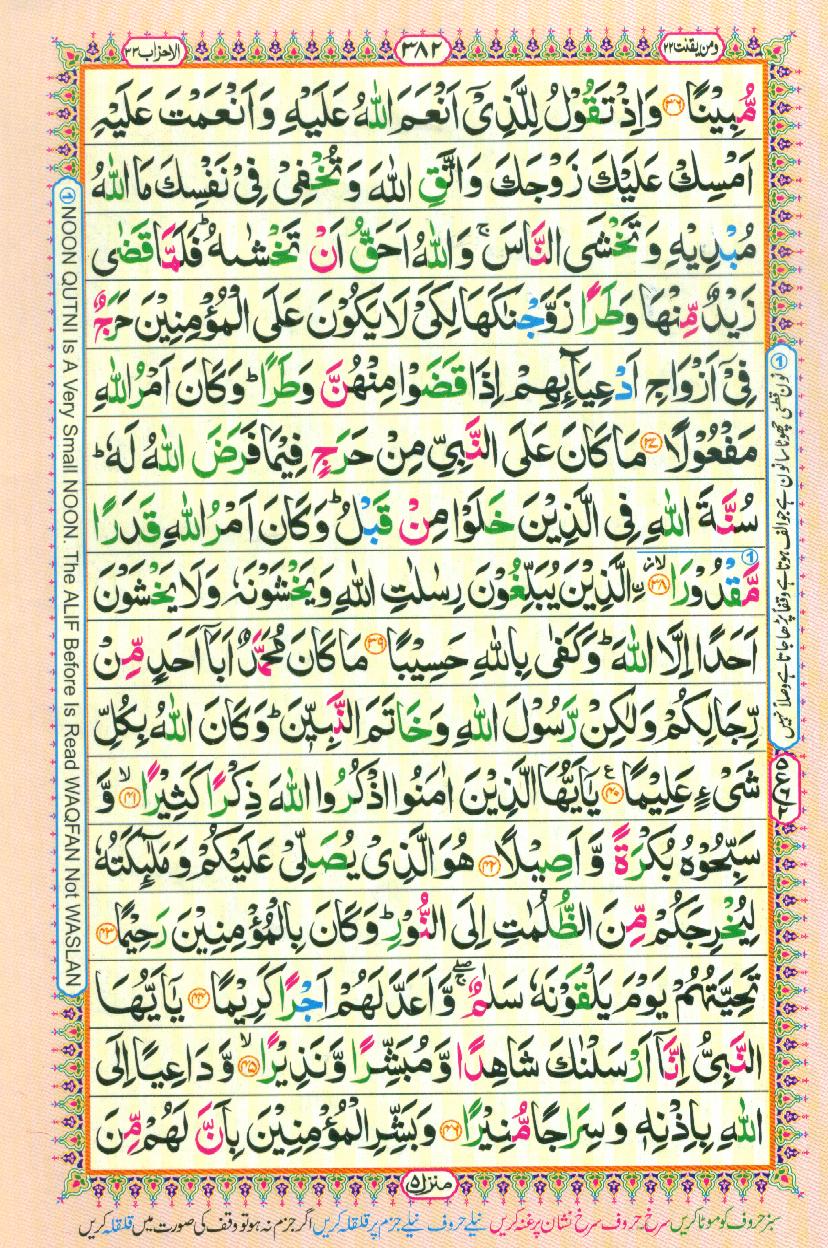 ومن یقنت ۲۲
۳۸۲
الاحزاب ۳۳
مُّبِیْنًا ﴿۳۶﴾ وَاِذْ تَقُوْلُ لِلَّذِیْۤ اَنْعَمَ اللّٰهُ عَلَیْهِ وَاَنْعَمْتَ عَلَیْهِ
اَمْسِكْ عَلَیْكَ زَوْجَكَ وَاتَّقِ اللّٰهَ وَتُخْفِیْ فِیْ نَفْسِكَ مَا اللّٰهُ
مُبْدِیْهِ وَتَخْشَی النَّاسَ ۚ وَاللّٰهُ اَحَقُّ اَنْ تَخْشٰىهُ ؕ فَلَمَّا قَضٰی
زَیْدٌ مِّنْهَا وَطَرًا زَوَّجْنٰكَهَا لِكَیْ لَا یَكُوْنَ عَلَی الْمُؤْمِنِیْنَ حَرَجٌ
فِیْۤ اَزْوَاجِ اَدْعِیَآىِٕهِمْ اِذَا قَضَوْا مِنْهُنَّ وَطَرًا ؕ وَكَانَ اَمْرُ اللّٰهِ
مَفْعُوْلًا ﴿۳۷﴾ مَا كَانَ عَلَی النَّبِیِّ مِنْ حَرَجٍ فِیْمَا فَرَضَ اللّٰهُ لَهٗ ؕ
سُنَّةَ اللّٰهِ فِی الَّذِیْنَ خَلَوْا مِنْ قَبْلُ ؕ وَكَانَ اَمْرُ اللّٰهِ قَدَرًا
مَّقْدُوْرًا ﴿۳۸﴾ ۙ ِ۟الَّذِیْنَ یُبَلِّغُوْنَ رِسٰلٰتِ اللّٰهِ وَیَخْشَوْنَهٗ وَلَا یَخْشَوْنَ
اَحَدًا اِلَّا اللّٰهَ ؕ وَكَفٰی بِاللّٰهِ حَسِیْبًا ﴿۳۹﴾ مَا كَانَ مُحَمَّدٌ اَبَاۤ اَحَدٍ مِّنْ
رِّجَالِكُمْ وَلٰكِنْ رَّسُوْلَ اللّٰهِ وَخَاتَمَ النَّبِیّٖنَ ؕ وَكَانَ اللّٰهُ بِكُلِّ
شَیْءٍ عَلِیْمًا ﴿۴۰﴾ یٰۤاَیُّهَا الَّذِیْنَ اٰمَنُوا اذْكُرُوا اللّٰهَ ذِكْرًا كَثِیْرًا ﴿۴۱﴾ ۙ وَّ
سَبِّحُوْهُ بُكْرَةً وَّاَصِیْلًا ﴿۴۲﴾ هُوَ الَّذِیْ یُصَلِّیْ عَلَیْكُمْ وَمَلٰٓىِٕكَتُهٗ
لِیُخْرِجَكُمْ مِّنَ الظُّلُمٰتِ اِلَی النُّوْرِ ؕ وَكَانَ بِالْمُؤْمِنِیْنَ رَحِیْمًا ﴿۴۳﴾
تَحِیَّتُهُمْ یَوْمَ یَلْقَوْنَهٗ سَلٰمٌ ۖۚ وَّاَعَدَّ لَهُمْ اَجْرًا كَرِیْمًا ﴿۴۴﴾ یٰۤاَیُّهَا
النَّبِیُّ اِنَّاۤ اَرْسَلْنٰكَ شَاهِدًا وَّمُبَشِّرًا وَّنَذِیْرًا ﴿۴۵﴾ ۙ وَّدَاعِیًا اِلَی
اللّٰهِ بِاِذْنِهٖ وَسِرَاجًا مُّنِیْرًا ﴿۴۶﴾ وَبَشِّرِ الْمُؤْمِنِیْنَ بِاَنَّ لَهُمْ مِّنَ
منزل ۵
سبز حروف کو موٹا کریں سرخ حروف سرخ نشان پر غنہ کریں نیلے حروف نیلے جزم پر قلقلہ کریں اگر جزم نہ ہو تو وقف کی صورت میں قلقلہ کریں
① نون قطنی چھوٹا سا نون ہے جو الف ہوتا ہے وقفاً پڑھا جاتا ہے وصلاً نہیں
① NOON QUTNI Is A Very Small NOON. The ALIF Before Is Read WAQFAN Not WASLAN